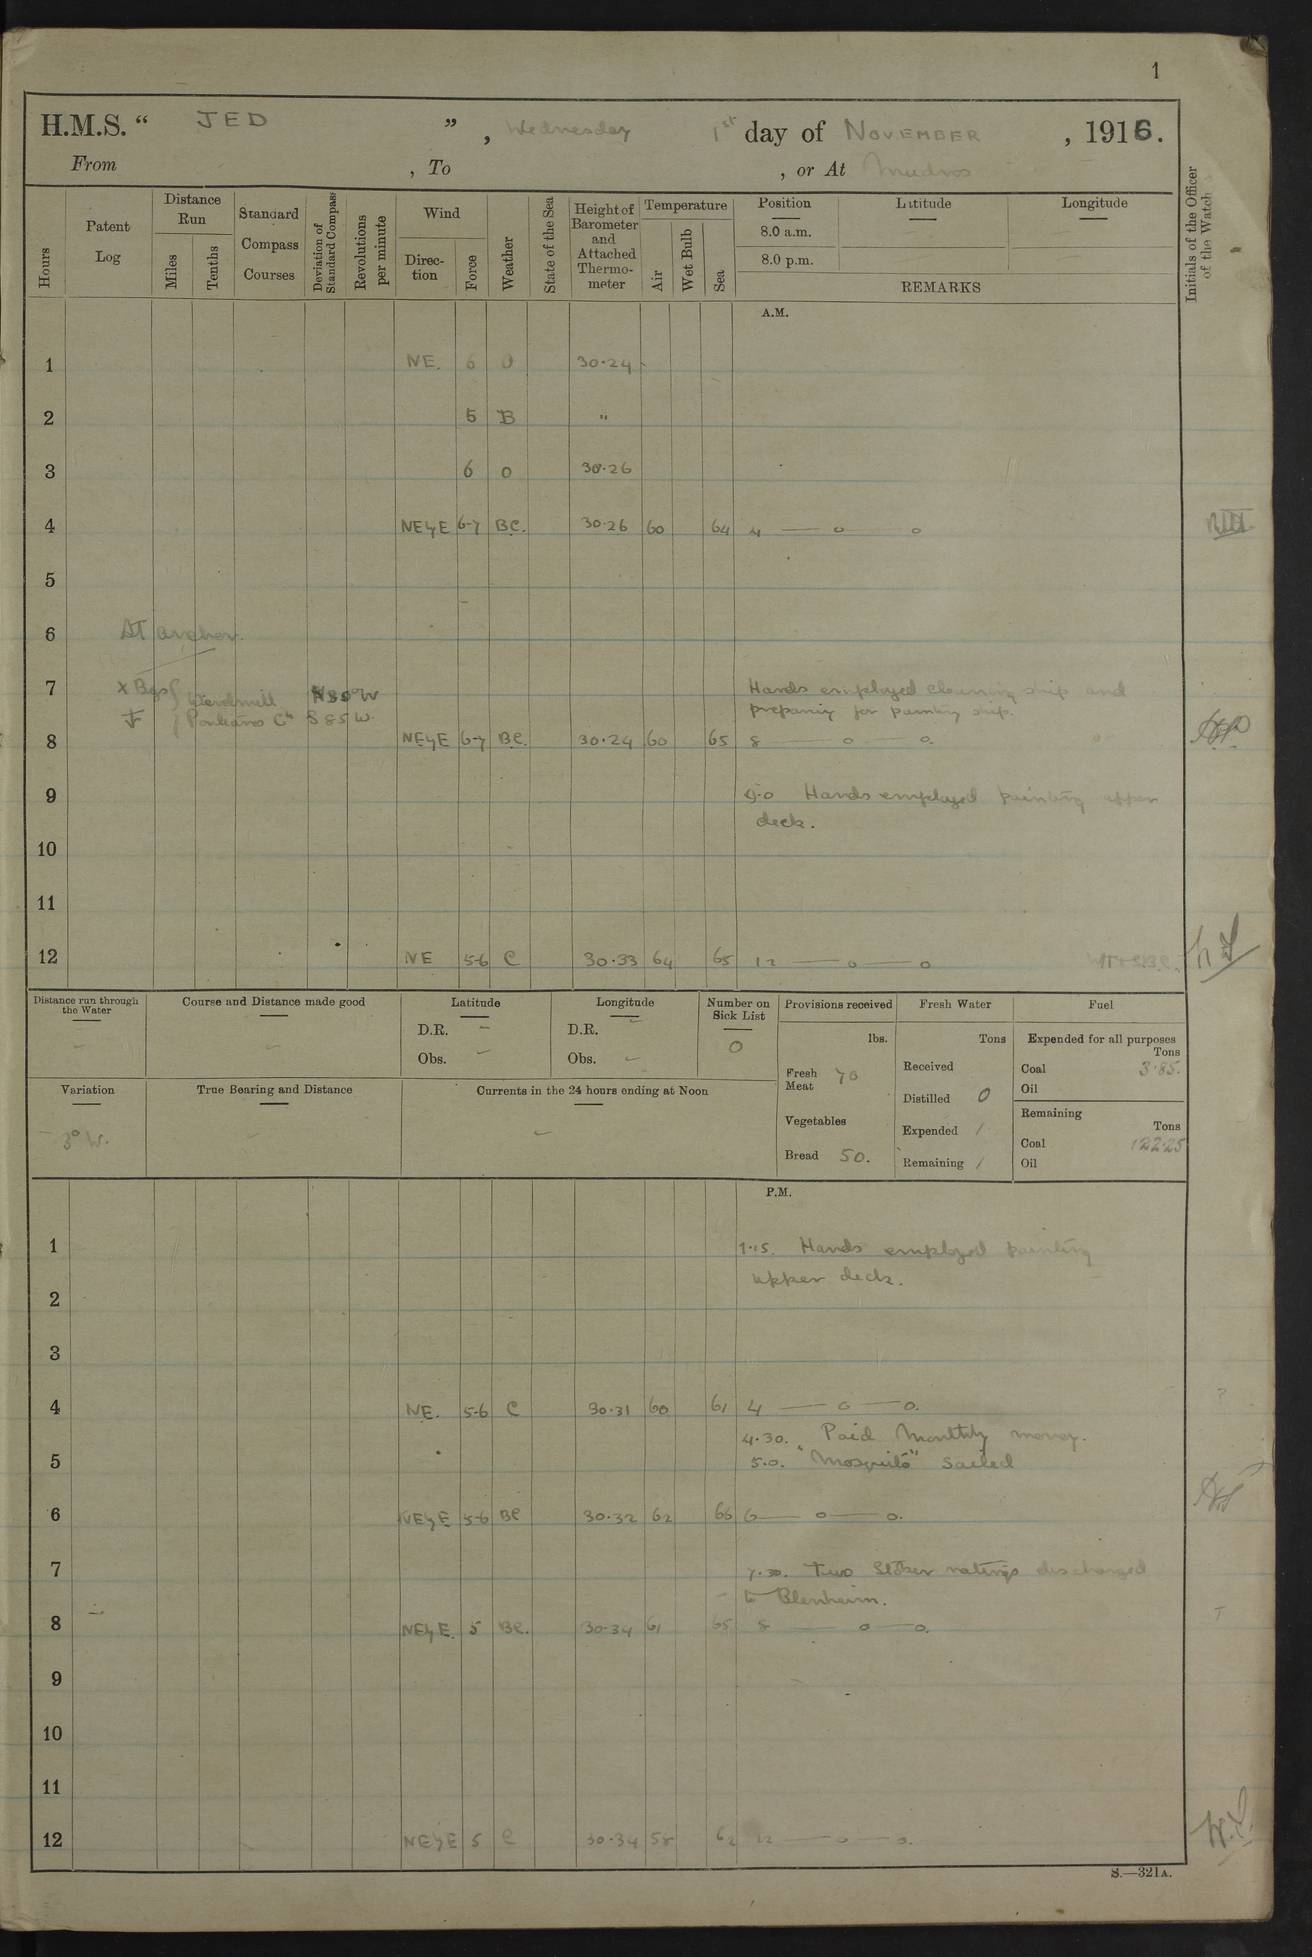 1
H.M.S. “ JED ” , Wednesday 1st day of NOVEMBER , 1916.
From , To , or At Mudros
Hours
Patent Log
Distance Run
Miles
Tenths
Standard Compass Courses
Deviation of Standard Compass
Revolutions per minute
Wind
Direction
Force
Weather
State of the Sea
Height of Barometer and Attached Thermometer
Temperature
Air
Wet Bulb
Sea
Position
8.0 a.m.
8.0 p.m.
Latitude
Longitude
REMARKS
Initials of the Officer of the Watch
A.M.
1 NE. 6 O 30.24
2 5 B "
3 6 O 30.26
4 NEyE 6-7 BC. 30.26 60 64 4 — o — o
5
6 At anchor.
7 x Bgs { Windmill N80°W Hands employed cleaning ship and
preparing for painting ship.
S 85 W.
8 NEyE 6-7 BC. 30.24 60 65 8 — o — o.
9 9.0 Hands employed painting upper
deck.
10
11
12 NE 5-6 C 30.33 64 65 12 — o — o
Distance run through the Water
Course and Distance made good
Latitude
D.R. –
Obs. –
Longitude
D.R. –
Obs. –
Number on Sick List
0
Provisions received
lbs.
Fresh Meat 70
Vegetables
Bread 50.
Fresh Water
Tons
Received
Distilled 0
Expended /
Remaining /
Fuel
Expended for all purposes
Tons
Coal 3.85.
Oil
Remaining
Tons
Coal 122.25
Oil
Variation
3° W.
True Bearing and Distance
Currents in the 24 hours ending at Noon
P.M.
1 1.15. Hands employed painting
upper deck.
2
3
4 NE. 5-6 C 30.31 60 61 4 — o — o.
4.30. Paid Monthly money.
5 5.0. "Mosquito" sailed
6 NEyE 5-6 BC 30.32 62 66 6 — o — o.
7 7.30. Two Stoker ratings discharged
to Blenheim.
8 NEyE. 5 BC. 30.34 61 65 8 — o — o.
9
10
11
12 NEyE 5 C 30.34 58 62 12 — o — o.
S.—321A.